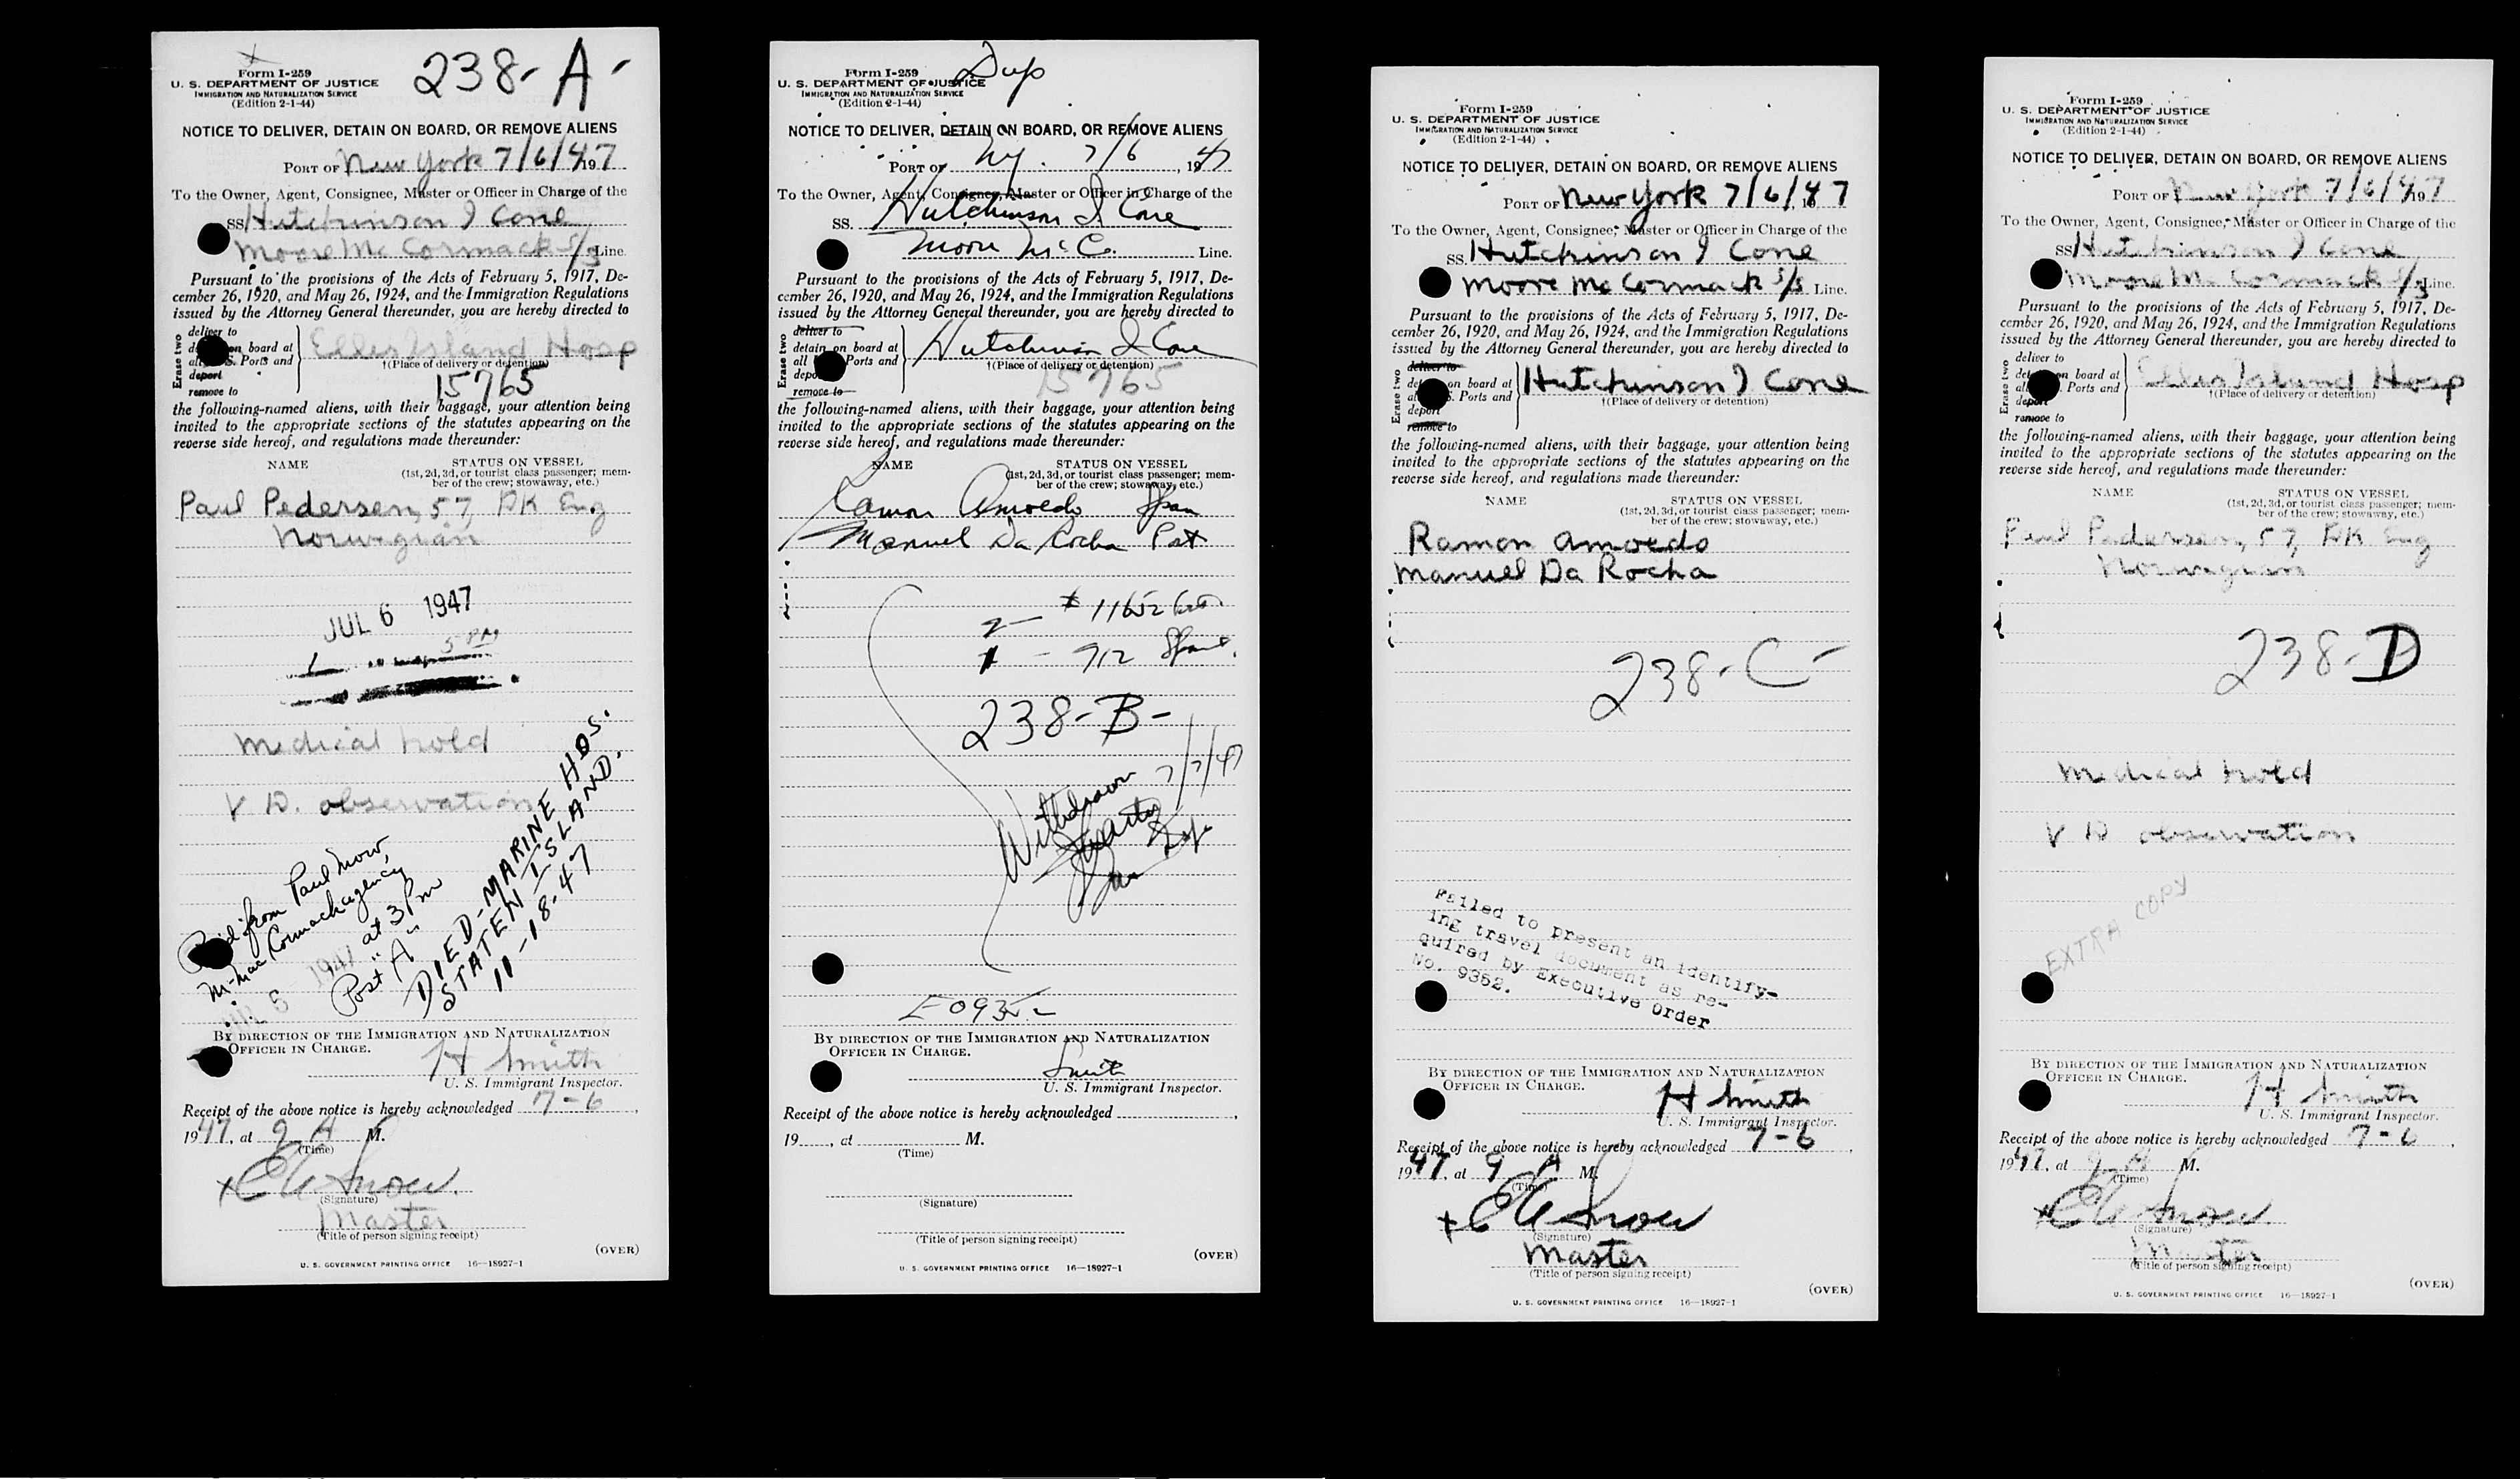 Form I-259
238-A-
U. S. DEPARTMENT OF JUSTICE
IMMIGRATION AND NATURALIZATION SERVICE
(Edition 2-1-44)
NOTICE TO DELIVER, DETAIN ON BOARD, OR REMOVE ALIENS
PORT OF New York 7/6/47, 197
To the Owner, Agent, Consignee, Master or Officer in Charge of the
SS. Hutchinson I Cone
Moore McCormack S/S Line.
Pursuant to the provisions of the Acts of February 5, 1917, De-
cember 26, 1920, and May 26, 1924, and the Immigration Regulations
issued by the Attorney General thereunder, you are hereby directed to
Erase two
deliver to
on board at
S. Ports and
deport
remove to
Ellis Island Hosp
†(Place of delivery or detention)
15765
the following-named aliens, with their baggage, your attention being
invited to the appropriate sections of the statutes appearing on the
reverse side hereof, and regulations made thereunder:
NAME STATUS ON VESSEL
(1st, 2d, 3d, or tourist class passenger; mem-
ber of the crew; stowaway, etc.)
Paul Pedersen, 57, DK Eng
Norwegian
JUL 6 1947
5 PM
Medical hold
V.D. observation
Rec'd from Paul Mow,
M-Mac Cormack agency,
at 3 Pm
Post "A"
DIED-MARINE HOS.
STATEN ISLAND.
11-18-47
BY DIRECTION OF THE IMMIGRATION AND NATURALIZATION
OFFICER IN CHARGE.
H Smith
U. S. Immigrant Inspector.
Receipt of the above notice is hereby acknowledged 7-6,
1947, at 9 A M.
(Time)
(Signature)
Master
(Title of person signing receipt)
(OVER)
U. S. GOVERNMENT PRINTING OFFICE 16—18927-1
Form I-259
Dup
U. S. DEPARTMENT OF JUSTICE
IMMIGRATION AND NATURALIZATION SERVICE
(Edition 2-1-44)
NOTICE TO DELIVER, DETAIN ON BOARD, OR REMOVE ALIENS
PORT OF NY. 7/6, 1947
To the Owner, Agent, Consignee, Master or Officer in Charge of the
SS. Hutchinson I Cone
Moore McC. Line.
Pursuant to the provisions of the Acts of February 5, 1917, De-
cember 26, 1920, and May 26, 1924, and the Immigration Regulations
issued by the Attorney General thereunder, you are hereby directed to
Erase two
deliver to
detain on board at
all Ports and
deport
remove to
Hutchinson I Cone
†(Place of delivery or detention)
15765
the following-named aliens, with their baggage, your attention being
invited to the appropriate sections of the statutes appearing on the
reverse side hereof, and regulations made thereunder:
NAME STATUS ON VESSEL
(1st, 2d, 3d, or tourist class passenger; mem-
ber of the crew; stowaway, etc.)
Ramon Amoedo Span
Manuel Da Rocha Port
2 — # 11652
1 — 912 Span.
238-B-
Withdrawn 7/7/47
E0 9352
BY DIRECTION OF THE IMMIGRATION AND NATURALIZATION
OFFICER IN CHARGE.
Smith
U. S. Immigrant Inspector.
Receipt of the above notice is hereby acknowledged
19, at M.
(Time)
(Signature)
(Title of person signing receipt)
(OVER)
U. S. GOVERNMENT PRINTING OFFICE 16—18927-1
Form I-259
U. S. DEPARTMENT OF JUSTICE
IMMIGRATION AND NATURALIZATION SERVICE
(Edition 2-1-44)
NOTICE TO DELIVER, DETAIN ON BOARD, OR REMOVE ALIENS
PORT OF New York 7/6/47
To the Owner, Agent, Consignee, Master or Officer in Charge of the
SS. Hutchinson I Cone
Moore McCormack S/S Line.
Pursuant to the provisions of the Acts of February 5, 1917, De-
cember 26, 1920, and May 26, 1924, and the Immigration Regulations
issued by the Attorney General thereunder, you are hereby directed to
Erase two
deliver to
on board at
S. Ports and
deport
remove to
Hutchinson I Cone
†(Place of delivery or detention)
the following-named aliens, with their baggage, your attention being
invited to the appropriate sections of the statutes appearing on the
reverse side hereof, and regulations made thereunder:
NAME STATUS ON VESSEL
(1st, 2d, 3d, or tourist class passenger; mem-
ber of the crew; stowaway, etc.)
Ramon Amoedo
Manuel Da Rocha
238-C-
Failed to present an identify-
ing travel document as re-
quired by Executive Order
No. 9352.
BY DIRECTION OF THE IMMIGRATION AND NATURALIZATION
OFFICER IN CHARGE.
H Smith
U. S. Immigrant Inspector.
Receipt of the above notice is hereby acknowledged 7-6,
1947, at 9 A M.
(Time)
(Signature)
Master
(Title of person signing receipt)
(OVER)
U. S. GOVERNMENT PRINTING OFFICE 16—18927-1
Form I-259
U. S. DEPARTMENT OF JUSTICE
IMMIGRATION AND NATURALIZATION SERVICE
(Edition 2-1-44)
NOTICE TO DELIVER, DETAIN ON BOARD, OR REMOVE ALIENS
PORT OF New York 7/6/47, 197
To the Owner, Agent, Consignee, Master or Officer in Charge of the
SS Hutchinson I Cone
Moore McCormack S/S Line.
Pursuant to the provisions of the Acts of February 5, 1917, De-
cember 26, 1920, and May 26, 1924, and the Immigration Regulations
issued by the Attorney General thereunder, you are hereby directed to
Erase two
deliver to
on board at
Ports and
deport
remove to
Ellis Island Hosp
†(Place of delivery or detention)
the following-named aliens, with their baggage, your attention being
invited to the appropriate sections of the statutes appearing on the
reverse side hereof, and regulations made thereunder:
NAME STATUS ON VESSEL
(1st, 2d, 3d, or tourist class passenger; mem-
ber of the crew; stowaway, etc.)
Paul Pedersen, 57, DK Eng
Norwegian
238-D
Medical hold
V D observation
EXTRA COPY
BY DIRECTION OF THE IMMIGRATION AND NATURALIZATION
OFFICER IN CHARGE.
H Smith
U. S. Immigrant Inspector.
Receipt of the above notice is hereby acknowledged 7-6,
1947, at 9 A M.
(Time)
(Signature)
Master
(Title of person signing receipt)
(OVER)
U. S. GOVERNMENT PRINTING OFFICE 16—18927-1